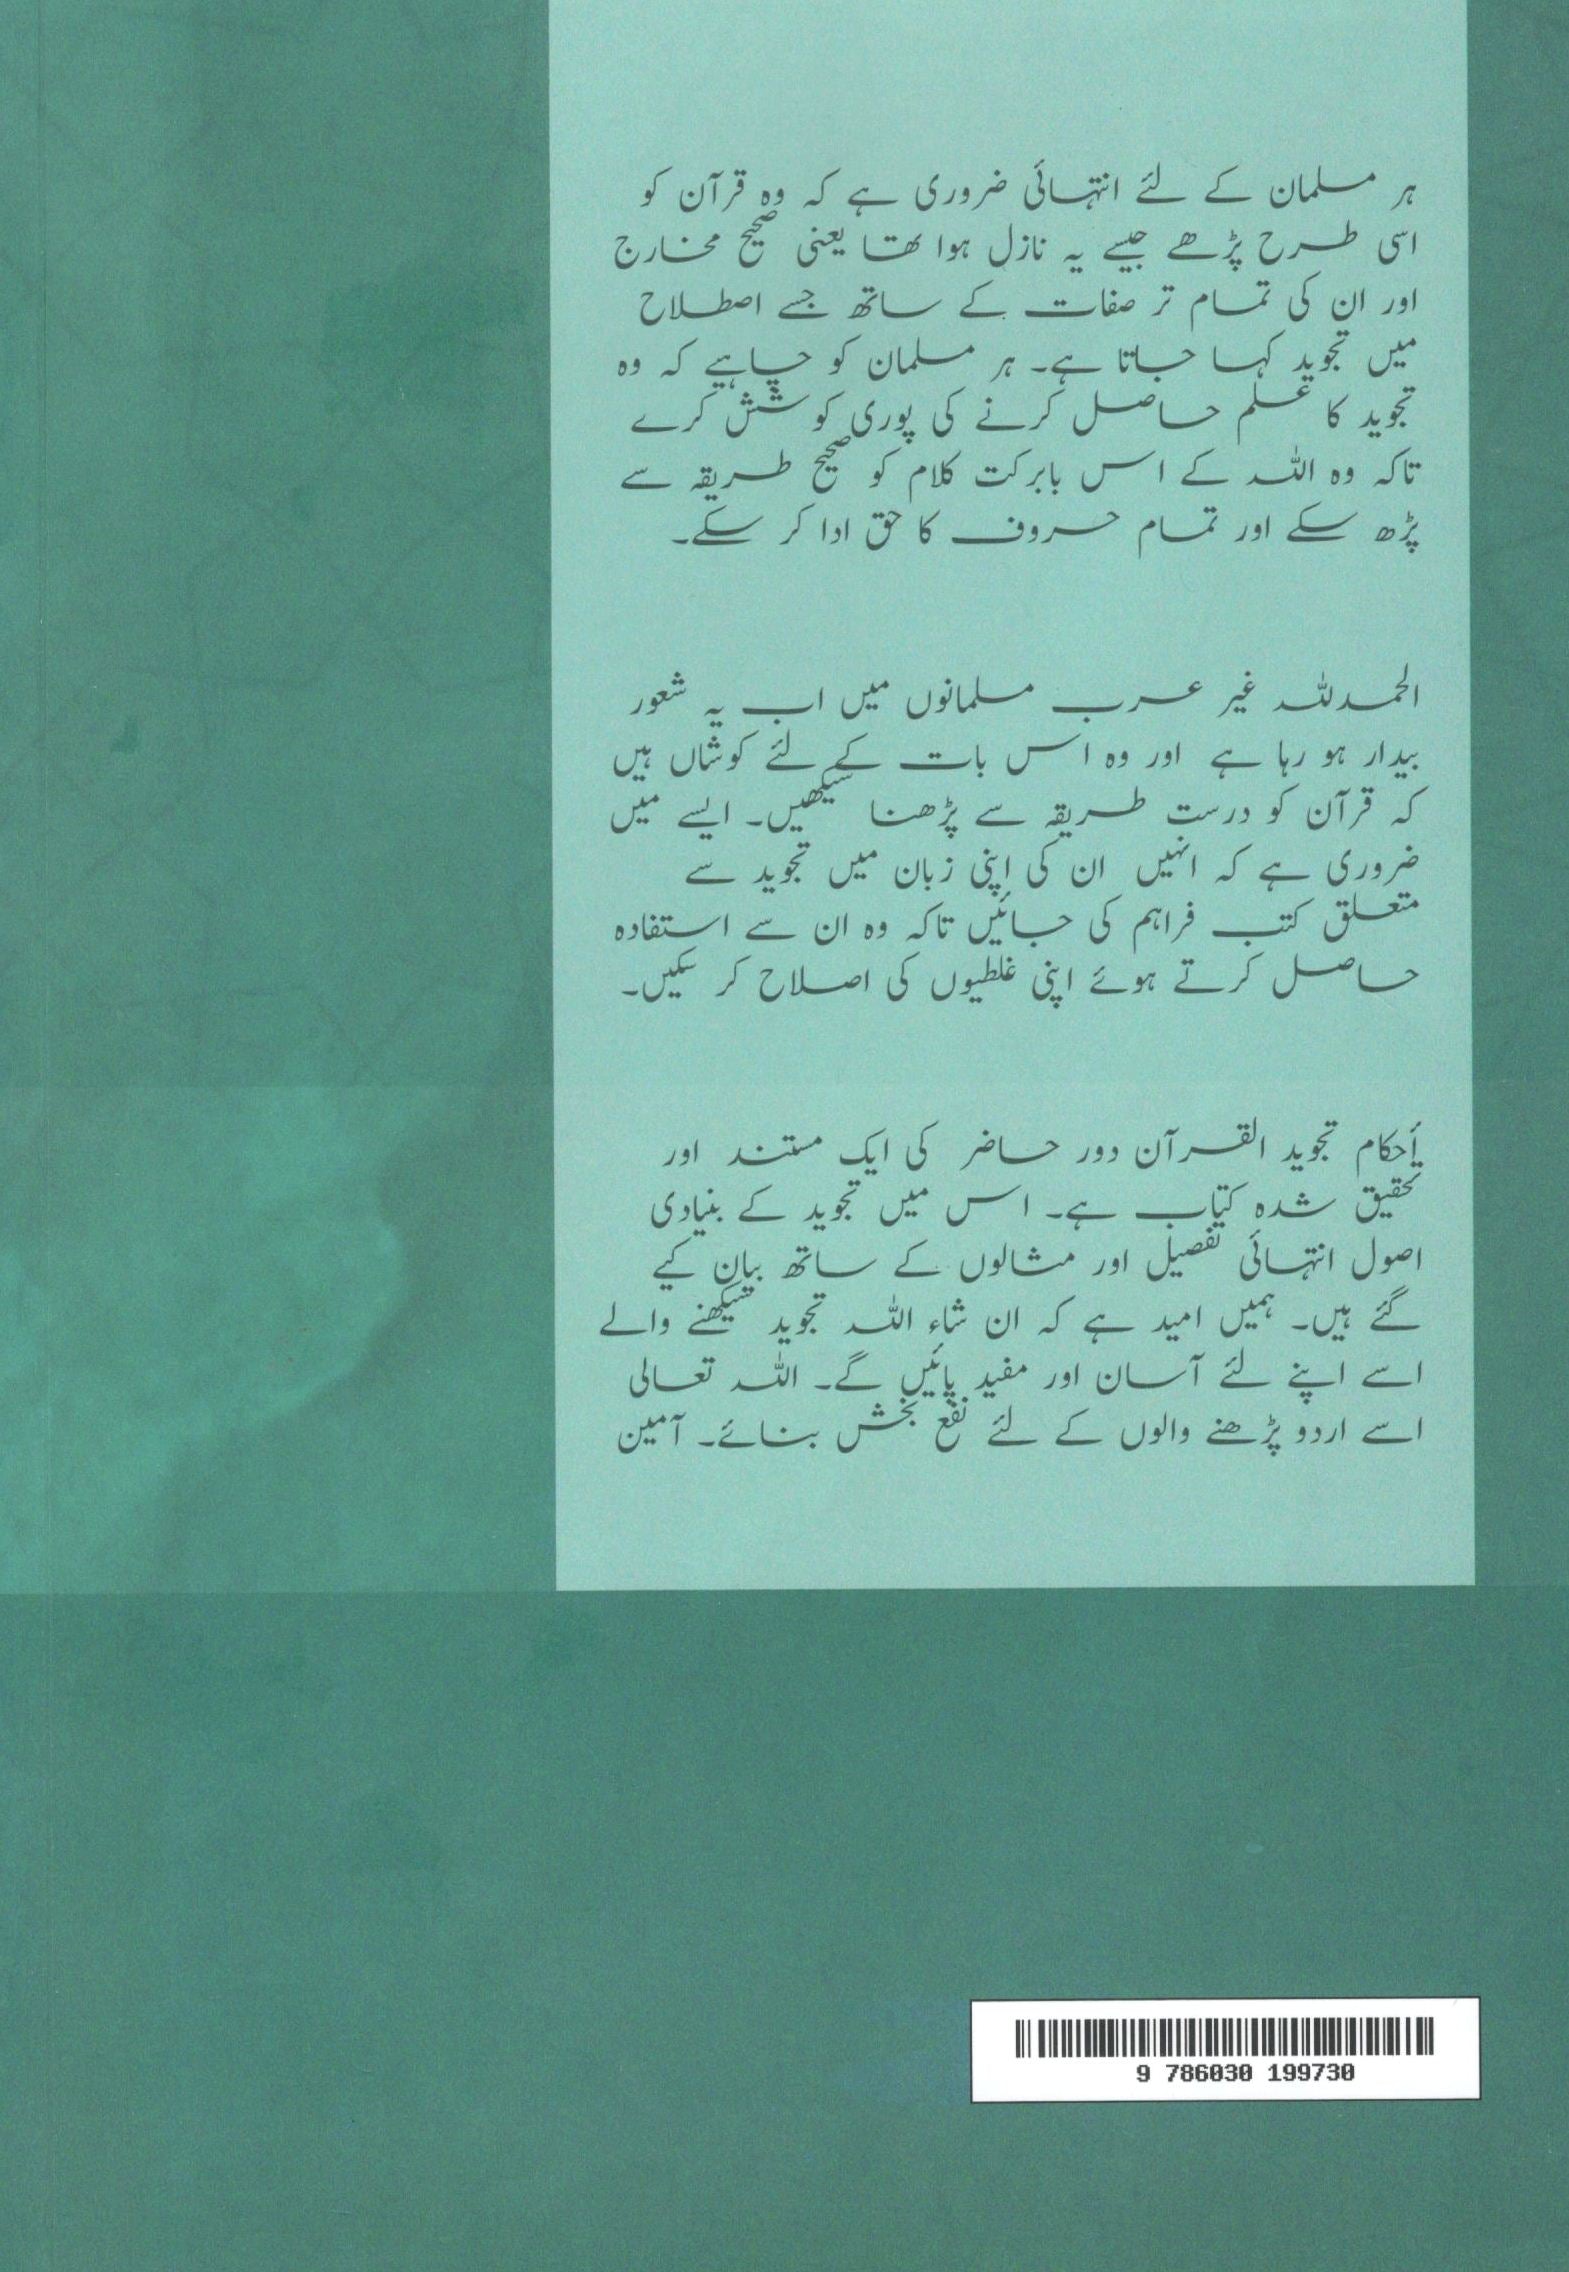 ہر مسلمان کے لئے انتہائی ضروری ہے کہ وہ قرآن کو
اسی طرح پڑھے جیسے یہ نازل ہوا تھا یعنی صحیح مخارج
اور ان کی تمام تر صفات کے ساتھ جسے اصطلاح
میں تجوید کہا جاتا ہے۔ ہر مسلمان کو چاہیے کہ وہ
تجوید کا علم حاصل کرنے کی پوری کوشش کرے
تاکہ وہ اللہ کے اس بابرکت کلام کو صحیح طریقہ سے
پڑھ سکے اور تمام حروف کا حق ادا کر سکے۔
الحمدللہ غیر عرب مسلمانوں میں اب یہ شعور
بیدار ہو رہا ہے اور وہ اس بات کے لئے کوشاں ہیں
کہ قرآن کو درست طریقہ سے پڑھنا سیکھیں۔ ایسے میں
ضروری ہے کہ انہیں ان کی اپنی زبان میں تجوید سے
متعلق کتب فراہم کی جائیں تاکہ وہ ان سے استفادہ
حاصل کرتے ہوئے اپنی غلطیوں کی اصلاح کر سکیں۔
أحکام تجوید القرآن دور حاضر کی ایک مستند اور
تحقیق شدہ کتاب ہے۔ اس میں تجوید کے بنیادی
اصول انتہائی تفصیل اور مثالوں کے ساتھ بیان کیے
گئے ہیں۔ ہمیں امید ہے کہ ان شاء اللہ تجوید سیکھنے والے
اسے اپنے لئے آسان اور مفید پائیں گے۔ اللہ تعالی
اسے اردو پڑھنے والوں کے لئے نفع بخش بنائے۔ آمین
9 786030 199730